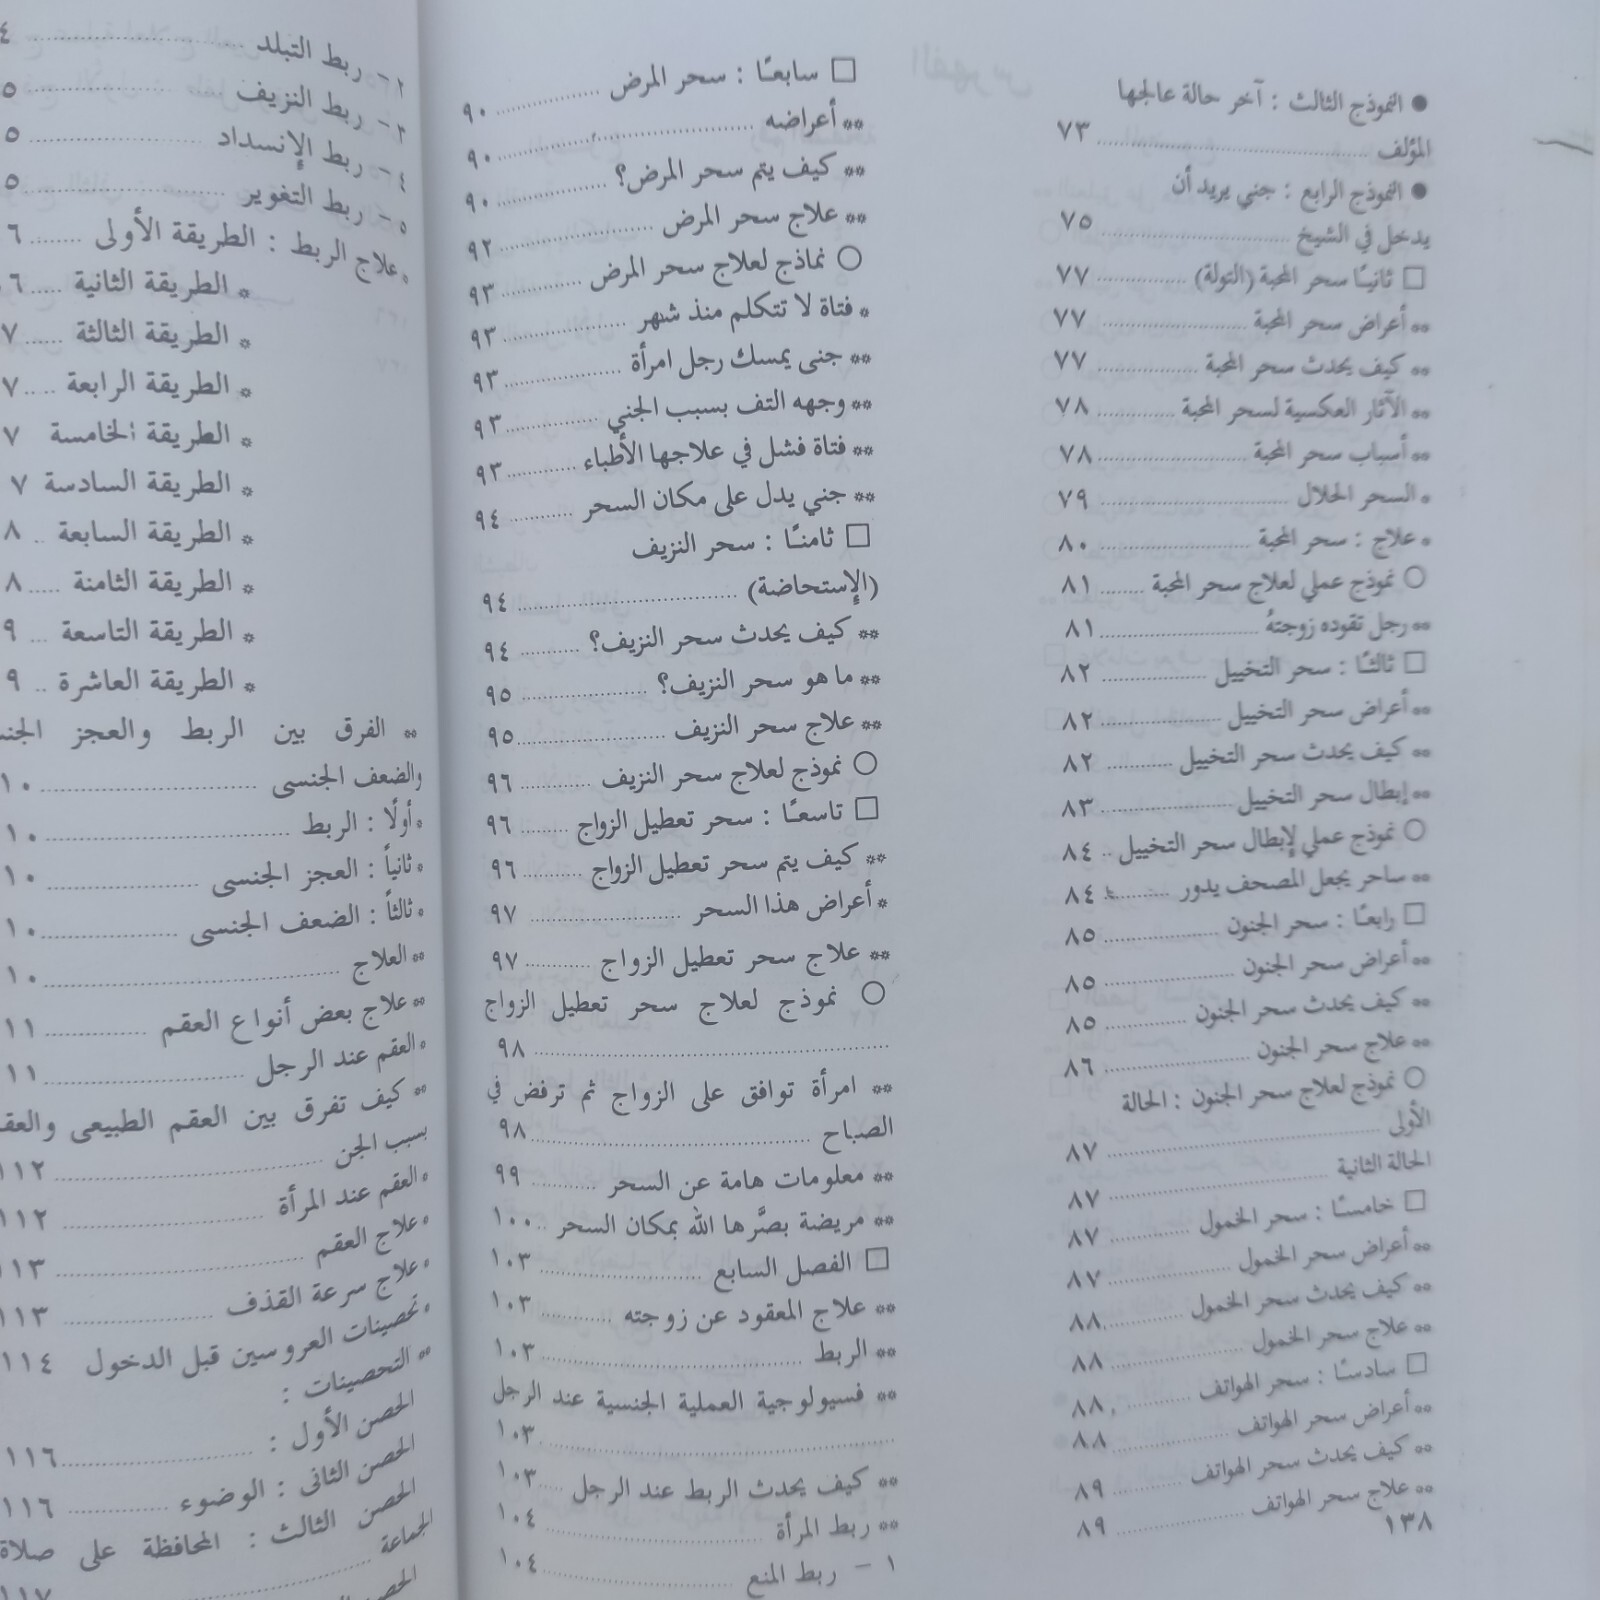 ● النموذج الثالث : آخر حالة عالجها
المؤلف ........ ٧٣
● النموذج الرابع : جني يريد أن
يدخل في الشيخ ........ ٧٥
□ ثانيـًا سحر المحبة (التولة) ........ ٧٧
** أعراض سحر المحبة ........ ٧٧
** كيف يحدث سحر المحبة ........ ٧٧
** الآثار العكسية لسحر المحبة ........ ٧٨
** أسباب سحر المحبة ........ ٧٨
* السحر الحلال ........ ٧٩
* علاج : سحر المحبة ........ ٨٠
○ نموذج عملي لعلاج سحر المحبة ........ ٨١
** رجل تقوده زوجتهُ ........ ٨١
□ ثالثـًا : سحر التخييل ........ ٨٢
** أعراض سحر التخييل ........ ٨٢
** كيف يحدث سحر التخييل ........ ٨٢
** إبطال سحر التخييل ........ ٨٣
○ نموذج عملي لإبطال سحر التخييل .. ٨٤
** ساحر يجعل المصحف يدور ........ ٨٤
□ رابعـًا : سحر الجنون ........ ٨٥
** أعراض سحر الجنون ........ ٨٥
** كيف يحدث سحر الجنون ........ ٨٥
** علاج سحر الجنون ........ ٨٦
○ نموذج لعلاج سحر الجنون : الحالة
الأولى ........ ٨٧
الحالة الثانية ........ ٨٧
□ خامسـًا : سحر الخمول ........ ٨٧
** أعراض سحر الخمول ........ ٨٧
** كيف يحدث سحر الخمول ........ ٨٨
** علاج سحر الخمول ........ ٨٨
□ سادسـًا : سحر الهواتف ........ ٨٨
** أعراض سحر الهواتف ........ ٨٨
** كيف يحدث سحر الهواتف ........ ٨٩
** علاج سحر الهواتف ........ ٨٩
١٣٨
□ سابعـًا : سحر المرض ........ ٩٠
** أعراضه ........ ٩٠
** كيف يتم سحر المرض؟ ........ ٩٠
** علاج سحر المرض ........ ٩٢
○ نماذج لعلاج سحر المرض ........ ٩٣
* فتاة لا تتكلم منذ شهر ........ ٩٣
** جنى يمسك رجل امرأة ........ ٩٣
** وجهه التف بسبب الجني ........ ٩٣
** فتاة فشل في علاجها الأطباء ........ ٩٣
** جني يدل على مكان السحر ........ ٩٤
□ ثامنـًا : سحر النزيف
(الإستحاضة) ........ ٩٤
** كيف يحدث سحر النزيف؟ ........ ٩٤
** ما هو سحر النزيف؟ ........ ٩٥
** علاج سحر النزيف ........ ٩٥
○ نموذج لعلاج سحر النزيف ........ ٩٦
□ تاسعـًا : سحر تعطيل الزواج ........ ٩٦
** كيف يتم سحر تعطيل الزواج ........ ٩٦
* أعراض هذا السحر ........ ٩٧
** علاج سحر تعطيل الزواج ........ ٩٧
○ نموذج لعلاج سحر تعطيل الزواج
........ ٩٨
** امرأة توافق على الزواج ثم ترفض في
الصباح ........ ٩٨
** معلومات هامة عن السحر ........ ٩٩
** مريضة بصَّرها الله بمكان السحر .. ١٠٠
□ الفصل السابع ........ ١٠٣
** علاج المعقود عن زوجته ........ ١٠٣
** الربط ........ ١٠٣
** فسيولوجية العملية الجنسية عند الرجل
........ ١٠٣
** كيف يحدث الربط عند الرجل ..... ١٠٣
** ربط المرأة ........ ١٠٤
١ - ربط المنع ........ ١٠٤
٢ - ربط التبلد ........ ٤
٣ - ربط النزيف ........ ٥
٤ - ربط الإنسداد ........ ٥
٥ - ربط التغوير ........ ٥
* علاج الربط : الطريقة الأولى ........ ٦
* الطريقة الثانية ..... ٦
* الطريقة الثالثة ..... ٧
* الطريقة الرابعة ..... ٧
* الطريقة الخامسة ٧
* الطريقة السادسة ٧
* الطريقة السابعة .. ٨
* الطريقة الثامنة ..... ٨
* الطريقة التاسعة .. ٩
* الطريقة العاشرة .. ٩
** الفرق بين الربط والعجز
والضعف الجنسى ........ ١٠
* أولًا : الربط ........ ١٠
* ثانياً : العجز الجنسى ........ ١٠
* ثالثاً : الضعف الجنسى ........ ١٠
** العلاج ........ ١٠
** علاج بعض أنواع العقم ........ ١١
* العقم عند الرجل ........ ١١
** كيف تفرق بين العقم الطبيعى
بسبب الجن ........ ١١٢
* العقم عند المرأة ........ ١١٢
* علاج العقم ........ ١١٣
* علاج سرعة القذف ........ ١١٣
* تحصينات العروسين قبل الدخول ١١٤
** التحصينات :
الحصن الأول : ........ ١١٦
الحصن الثانى : الوضوء ........ ١١٦
الحصن الثالث : المحافظة على صلاة
الجماعة ........ ١١٧